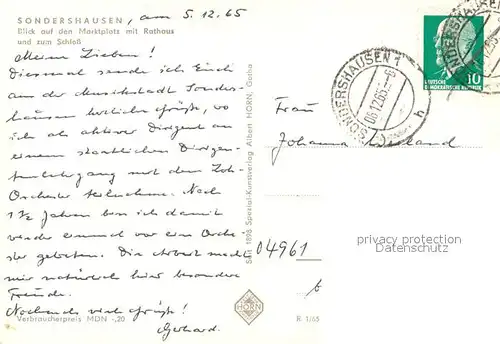 SONDERSHAUSEN, am 5.12.65
Blick auf den Marktplatz mit Rathaus
und zum Schloß
Meine Lieben!
Diesmal sende ich Euch
aus der Musikstadt Sonders-
hausen herzliche Grüße, wo
ich als aktiver Dirigent an
einem staatlichen Dirigen-
tenlehrgang mit dem Loh-
Orchester teilnehme. Nach
1½ Jahren bin ich damit
wieder einmal vor ein Orche-
ster getreten. Die Arbeit macht
mir natürlich hier besondere
Freude.
Nochmals viele Grüße!
Gerhard.
Verbraucherpreis MDN -,20
Seit 1898 Spezial-Kunstverlag Albert HORN, Gotha
HORN
R 1/65
SONDERSHAUSEN 1
06.12.65
h
DEUTSCHE
DEMOKRATISCHE REPUBLIK
10
Frau
Johanna
privacy protection
Datenschutz
04961